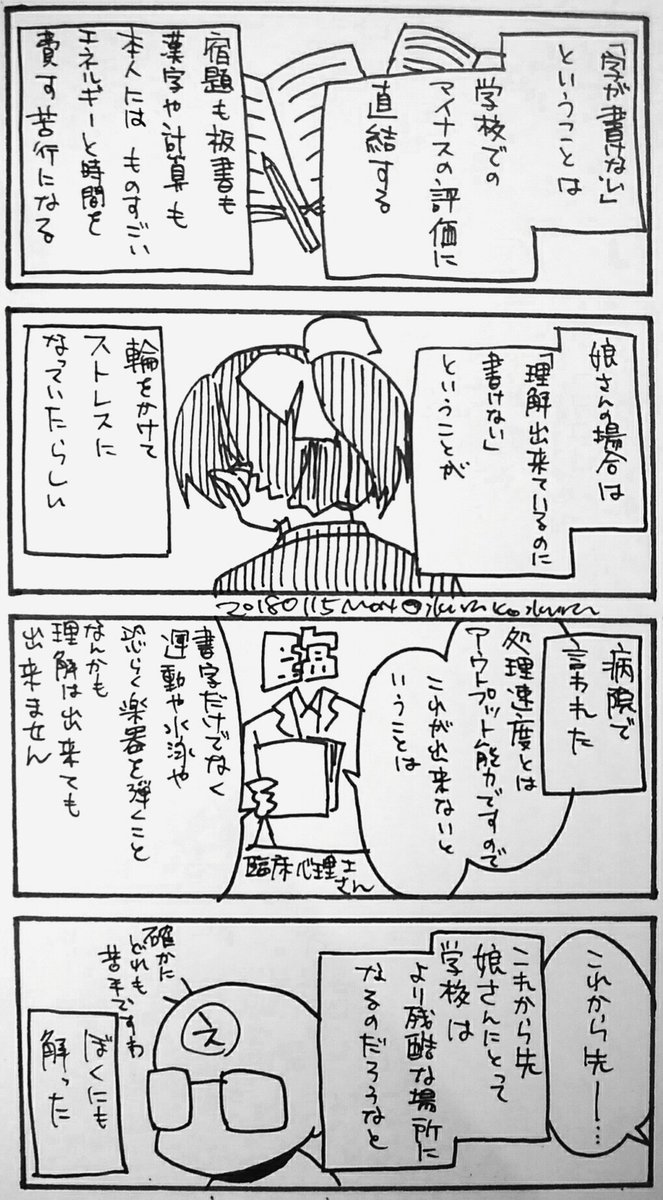 「字が書けない」
ということは
学校での
マイナスの評価に
直結する
宿題も板書も
漢字や計算も
本人には ものすごい
エネルギーと時間を
費す苦行になる
娘さんの場合は
「理解出来ているのに
書けない」
ということが
輪をかけて
ストレスに
なっていたらしい
20180115
病院で
言われた
処理速度とは
アウトプット能力ですので
これが出来ないと
いうことは
臨
臨床心理士
さん
書字だけでなく
運動や水泳や
恐らく楽器を弾くこと
なんかも
理解は出来ても
出来ません
これから先ー…
これから先
娘さんにとって
学校は
より残酷な場所に
なるのだろうなと
確かに
どれも
苦手ですわ
え
ぼくにも
解った